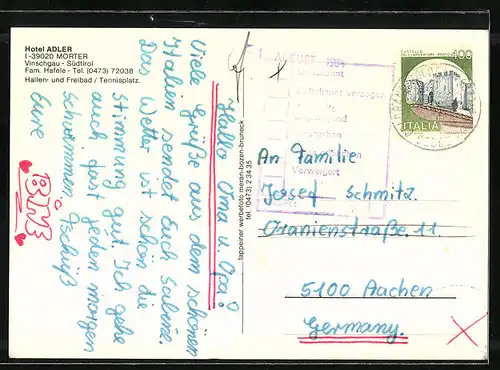 Hotel ADLER
I-39020 MORTER
Vinschgau - Südtirol
Fam. Hafele - Tel. (0473) 72038
Hallen- und Freibad / Tennisplatz.
Hallo Oma u. Opa!
Viele Grüße aus dem schönen
Italien sendet Euch Sabine.
Das Wetter ist schön die
Stimmung gut. Ich gehe
auch fast jeden morgen
schwimmen. Tschüß
eure
tappeiner werbefoto meran-bozen-bruneck
tel. (0473) 2 34 35
1 AUGUST 1984
verzogen
400
ITALIA
An Familie
Josef Schmitz.
Oranienstraße. 11
5100 Aachen
Germany.